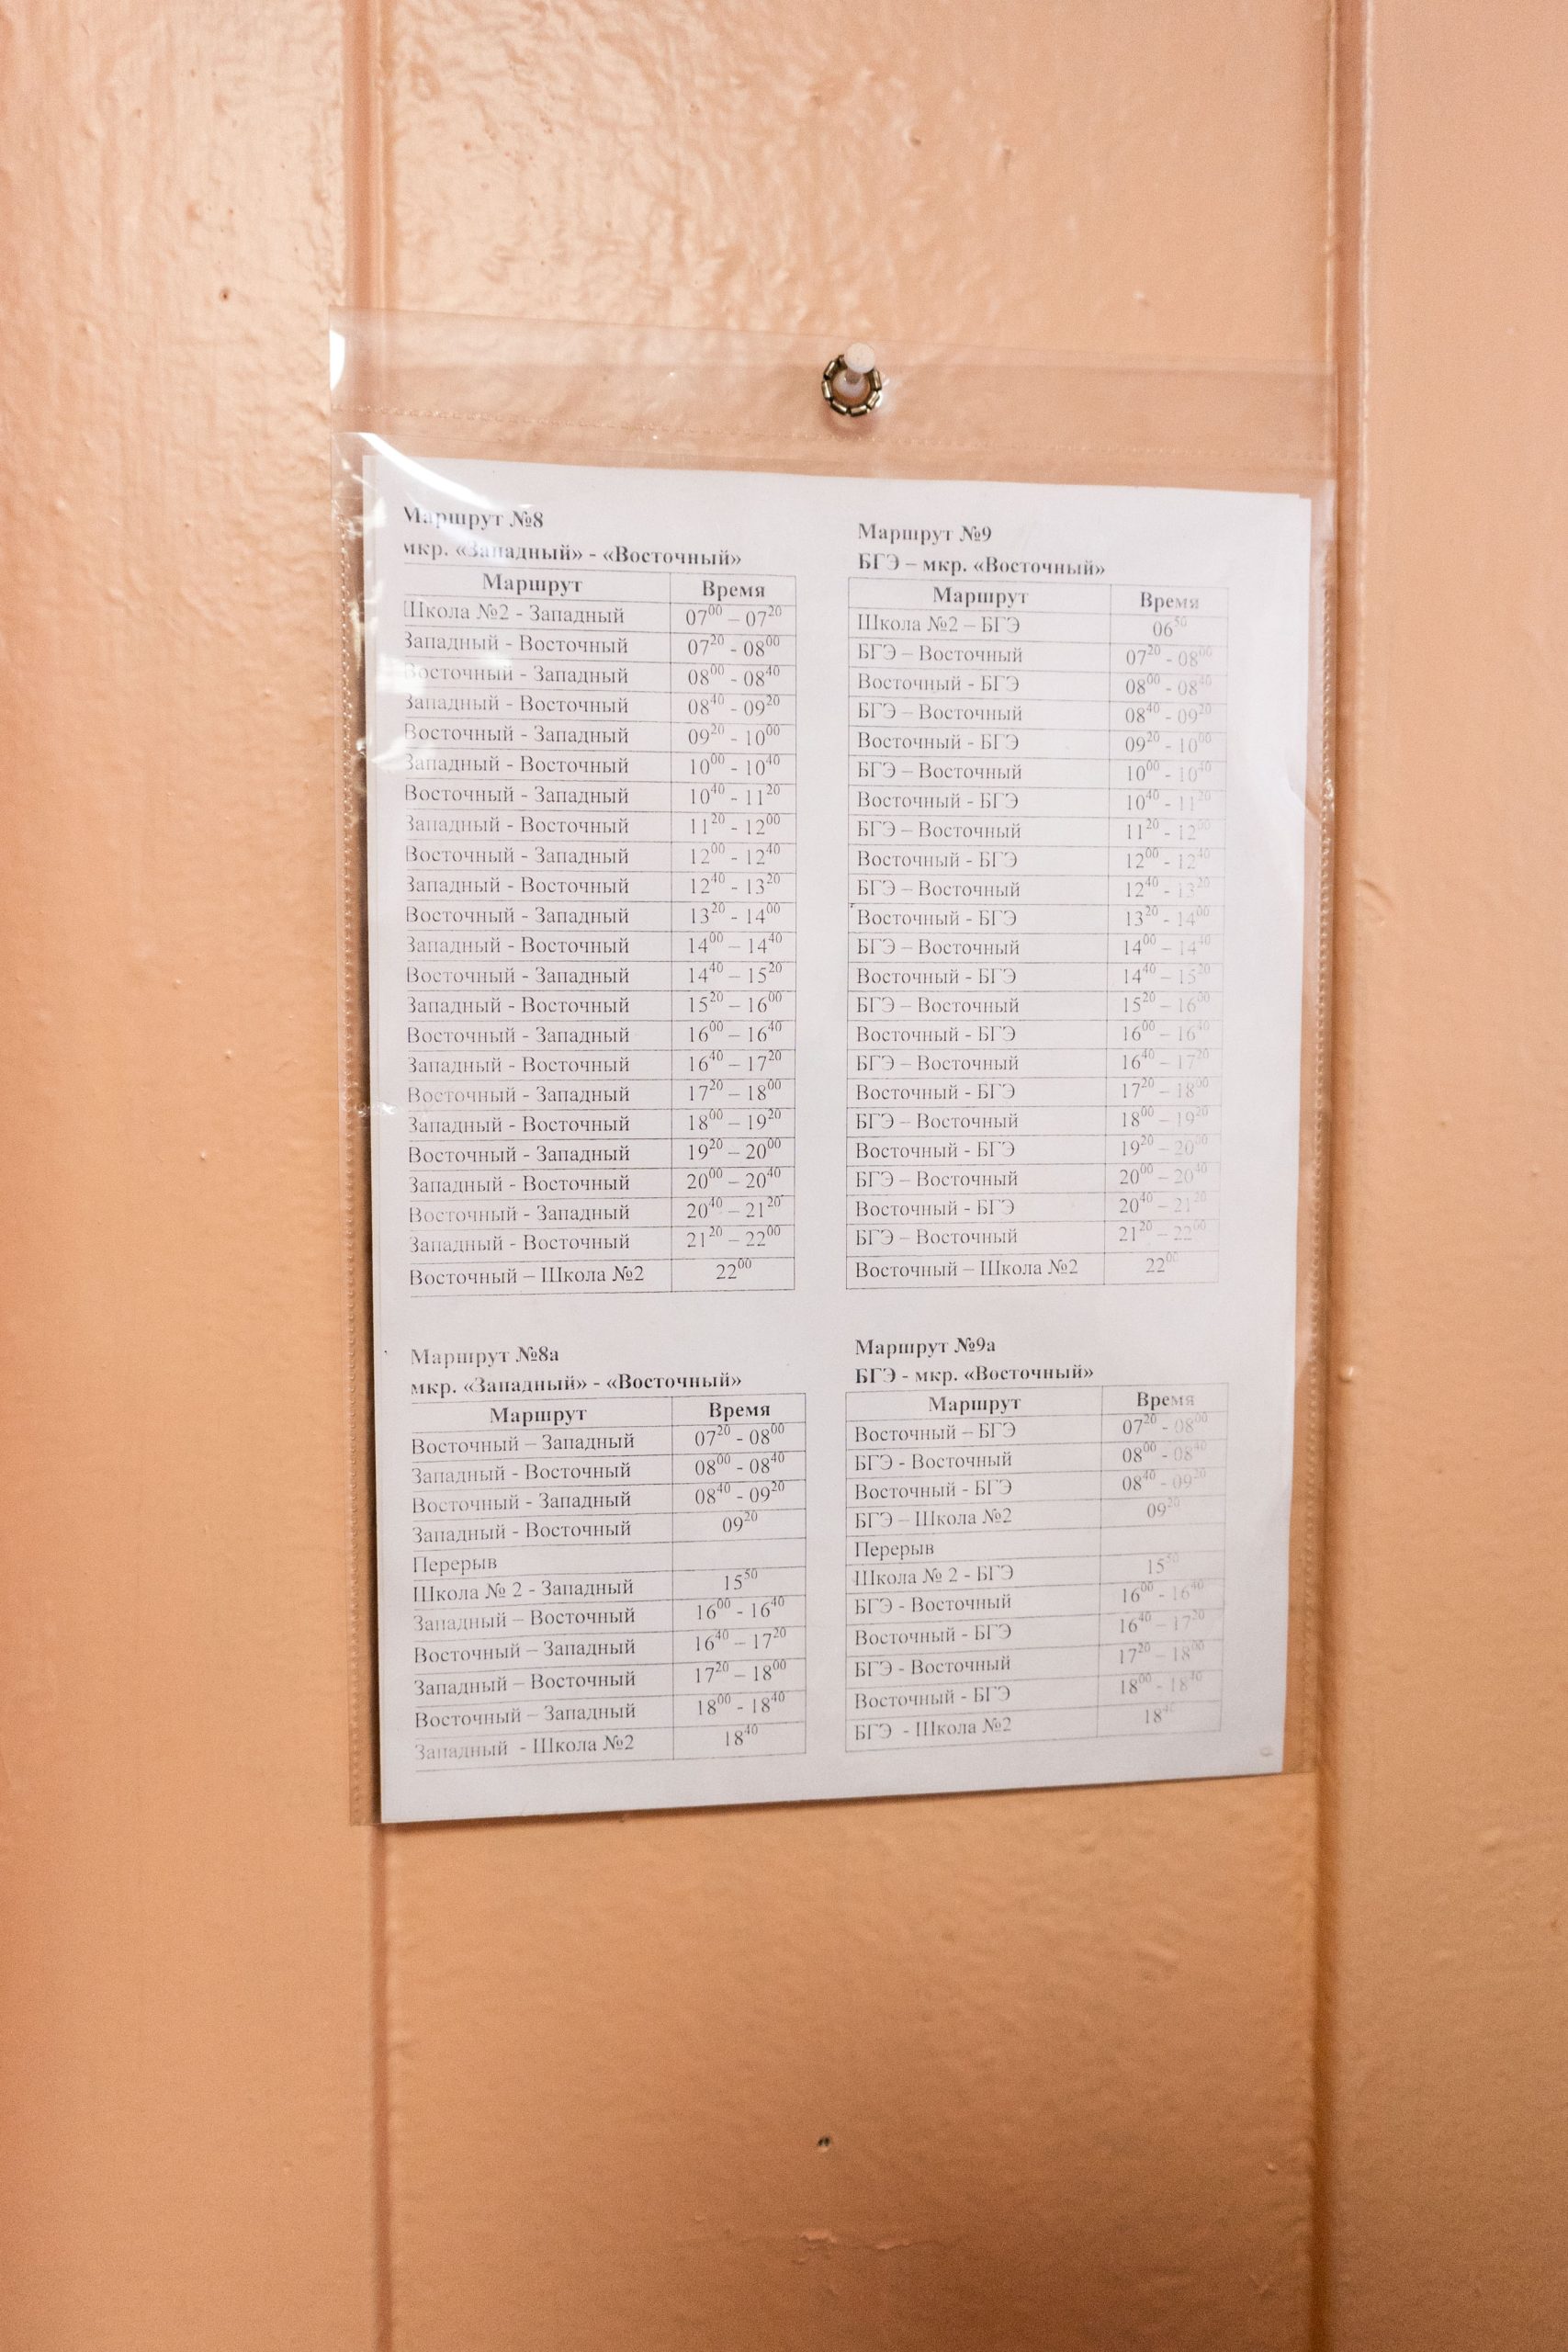 Маршрут №8
мкр. «Западный» - «Восточный»
Маршрут Время
Школа №2 - Западный 07⁰⁰ – 07²⁰
Западный - Восточный 07²⁰ - 08⁰⁰
Восточный - Западный 08⁰⁰ - 08⁴⁰
Западный - Восточный 08⁴⁰ - 09²⁰
Восточный - Западный 09²⁰ - 10⁰⁰
Западный - Восточный 10⁰⁰ - 10⁴⁰
Восточный - Западный 10⁴⁰ - 11²⁰
Западный - Восточный 11²⁰ - 12⁰⁰
Восточный - Западный 12⁰⁰ - 12⁴⁰
Западный - Восточный 12⁴⁰ - 13²⁰
Восточный - Западный 13²⁰ - 14⁰⁰
Западный - Восточный 14⁰⁰ – 14⁴⁰
Восточный - Западный 14⁴⁰ – 15²⁰
Западный - Восточный 15²⁰ – 16⁰⁰
Восточный - Западный 16⁰⁰ – 16⁴⁰
Западный - Восточный 16⁴⁰ – 17²⁰
Восточный - Западный 17²⁰ – 18⁰⁰
Западный - Восточный 18⁰⁰ – 19²⁰
Восточный - Западный 19²⁰ – 20⁰⁰
Западный - Восточный 20⁰⁰ – 20⁴⁰
Восточный - Западный 20⁴⁰ – 21²⁰
Западный - Восточный 21²⁰ – 22⁰⁰
Восточный – Школа №2 22⁰⁰
Маршрут №9
БГЭ – мкр. «Восточный»
Маршрут Время
Школа №2 – БГЭ 06⁵⁰
БГЭ – Восточный 07²⁰ - 08⁰⁰
Восточный - БГЭ 08⁰⁰ - 08⁴⁰
БГЭ – Восточный 08⁴⁰ - 09²⁰
Восточный - БГЭ 09²⁰ - 10⁰⁰
БГЭ – Восточный 10⁰⁰ - 10⁴⁰
Восточный - БГЭ 10⁴⁰ - 11²⁰
БГЭ – Восточный 11²⁰ - 12⁰⁰
Восточный - БГЭ 12⁰⁰ - 12⁴⁰
БГЭ – Восточный 12⁴⁰ - 13²⁰
Восточный - БГЭ 13²⁰ - 14⁰⁰
БГЭ – Восточный 14⁰⁰ – 14⁴⁰
Восточный - БГЭ 14⁴⁰ – 15²⁰
БГЭ – Восточный 15²⁰ – 16⁰⁰
Восточный - БГЭ 16⁰⁰ – 16⁴⁰
БГЭ – Восточный 16⁴⁰ – 17²⁰
Восточный - БГЭ 17²⁰ – 18⁰⁰
БГЭ – Восточный 18⁰⁰ – 19²⁰
Восточный - БГЭ 19²⁰ – 20⁰⁰
БГЭ – Восточный 20⁰⁰ – 20⁴⁰
Восточный - БГЭ 20⁴⁰ – 21²⁰
БГЭ – Восточный 21²⁰ – 22⁰⁰
Восточный – Школа №2 22⁰⁰
Маршрут №8а
мкр. «Западный» - «Восточный»
Маршрут Время
Восточный – Западный 07²⁰ - 08⁰⁰
Западный - Восточный 08⁰⁰ - 08⁴⁰
Восточный - Западный 08⁴⁰ - 09²⁰
Западный - Восточный 09²⁰
Перерыв
Школа № 2 - Западный 15⁵⁰
Западный – Восточный 16⁰⁰ - 16⁴⁰
Восточный – Западный 16⁴⁰ – 17²⁰
Западный – Восточный 17²⁰ – 18⁰⁰
Восточный – Западный 18⁰⁰ - 18⁴⁰
Западный - Школа №2 18⁴⁰
Маршрут №9а
БГЭ - мкр. «Восточный»
Маршрут Время
Восточный – БГЭ 07²⁰ - 08⁰⁰
БГЭ - Восточный 08⁰⁰ - 08⁴⁰
Восточный - БГЭ 08⁴⁰ - 09²⁰
БГЭ – Школа №2 09²⁰
Перерыв
Школа № 2 - БГЭ 15⁵⁰
БГЭ - Восточный 16⁰⁰ - 16⁴⁰
Восточный - БГЭ 16⁴⁰ – 17²⁰
БГЭ - Восточный 17²⁰ – 18⁰⁰
Восточный - БГЭ 18⁰⁰ - 18⁴⁰
БГЭ - Школа №2 18⁴⁰